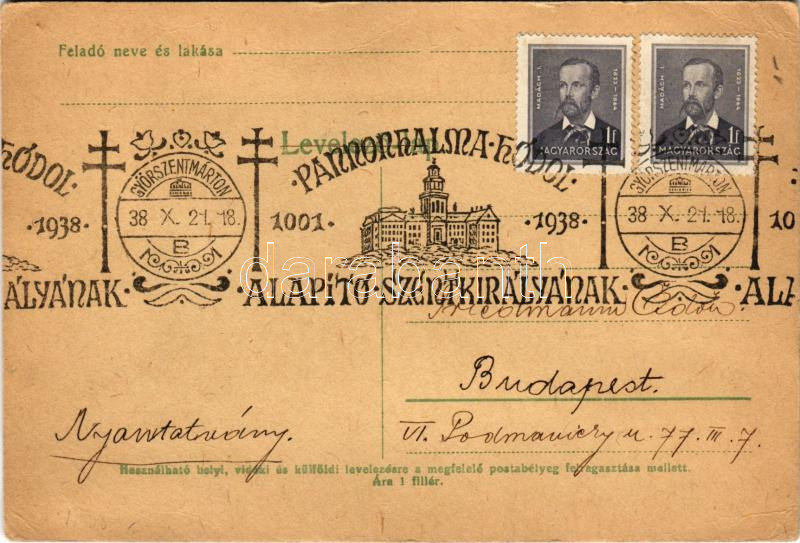 Feladó neve és lakása
MADÁCH I. 1823–1864
1f
MAGYARORSZÁG
MADÁCH I. 1823–1864
1f
MAGYARORSZÁG
Levelezőlap
HÓDOL · PANNONHALMA · HÓDOL ·
GYŐRSZENTMÁRTON
GYŐRSZENTMÁRTON
· 1938 · 38 X. 21. 18. 1001. · 1938 · 38 X. 21. 18.
B
B
ÁLYÁNAK · ALAPÍTÓ · SZENTKIRÁLYÁNAK ·
darabanth
Friedmann Ödön.
Budapest.
Nyomtatvány.
VI. Podmaniczky u. 77. III. 7.
Használható helyi, vidéki és külföldi levelezésre a megfelelő postabélyeg felragasztása mellett.
Ára 1 fillér.